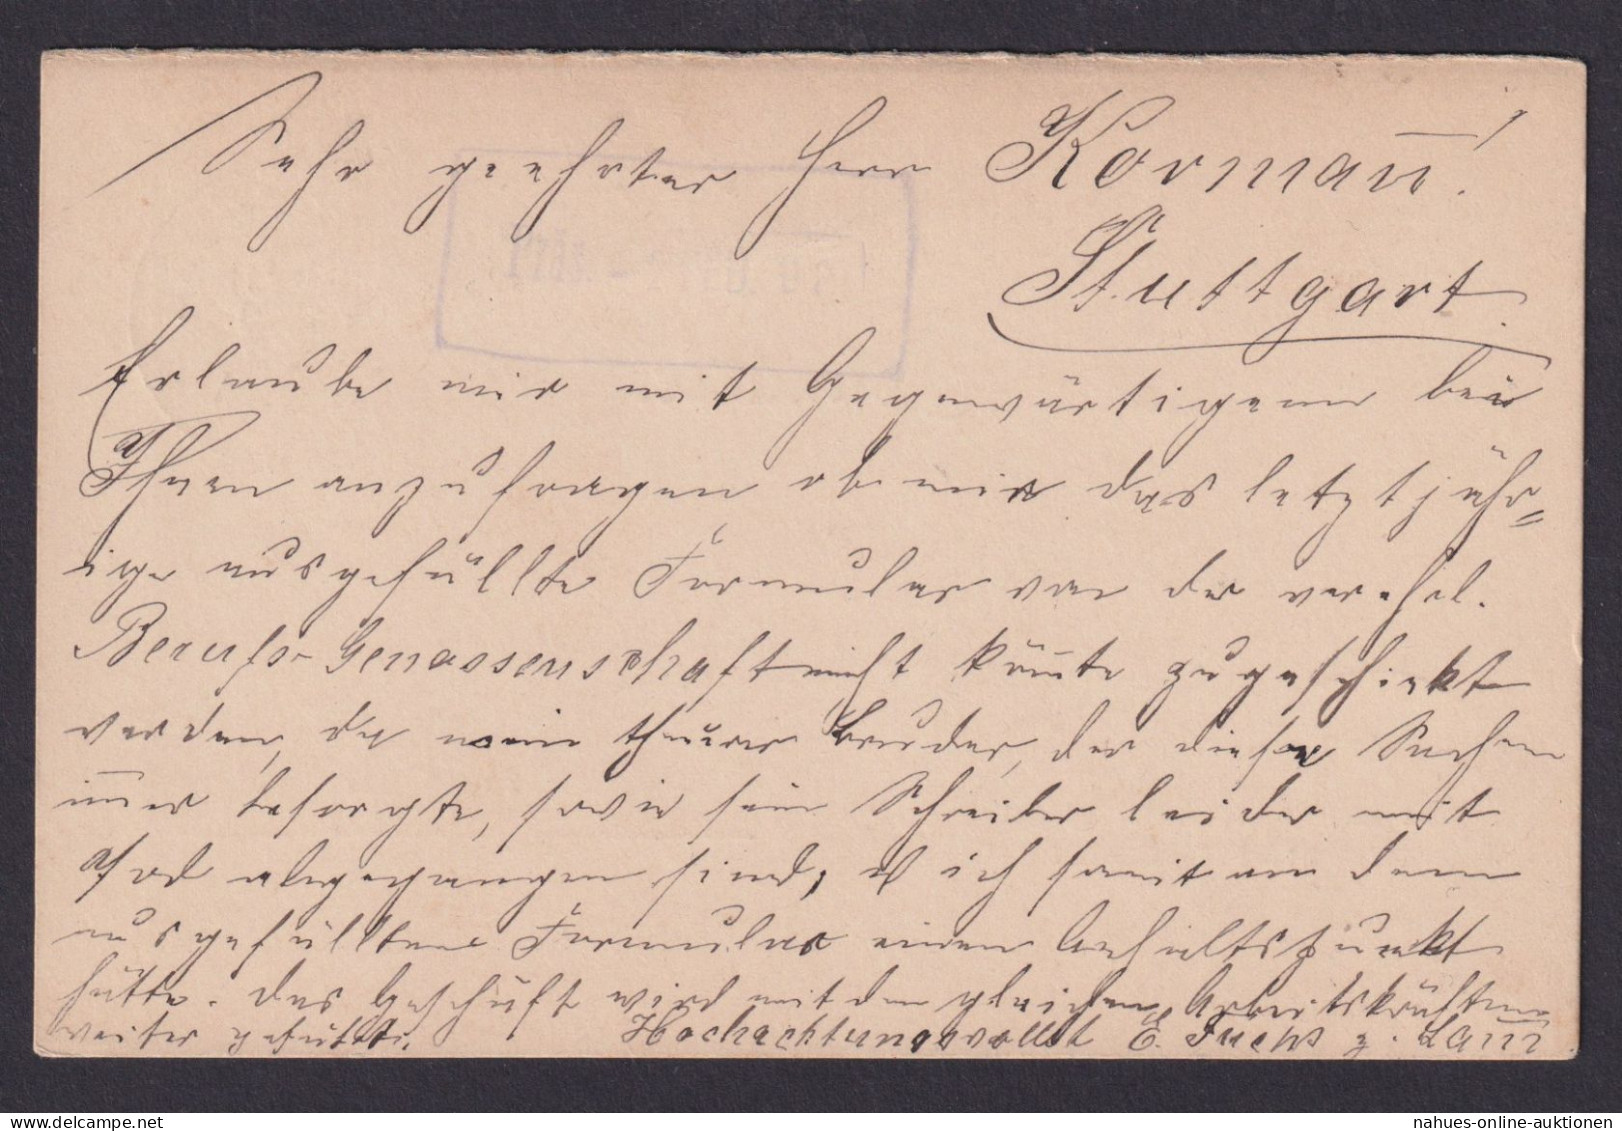 Sehr geehrter Herr Korman̅!
Stuttgart.
Erlaube mir mit Gegenwärtigem bei
Ihnen anzufragen ob mir das letztjähr=
ige ausgefüllte Formular von der verehrl.
Berufs-Genossenschaft nicht kön̅te zugeschickt
werden, da mein theurer Bruder, der diese Sachen
im̅er besorgte, sowie sein Schreiber leider mit
Tod abgegangen sind, ich somit an dem
ausgefüllten Formular einen Anhaltspunkt
hätte. Das Geschäft wird mit den gleichen Arbeitskräften
weiter geführt. Hochachtungsvollst E. Fuchs z. Lam̅
nahues-online-auktionen